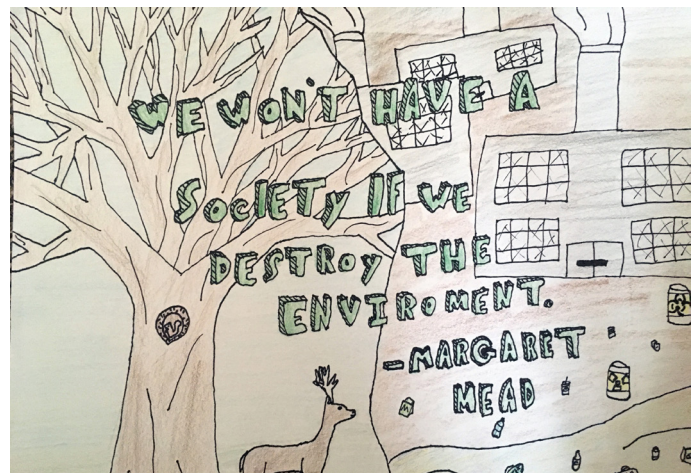 WE WON'T HAVE A
SOCIETY IF WE
DESTROY THE
ENVIROMENT.
-MARGARET
MEAD